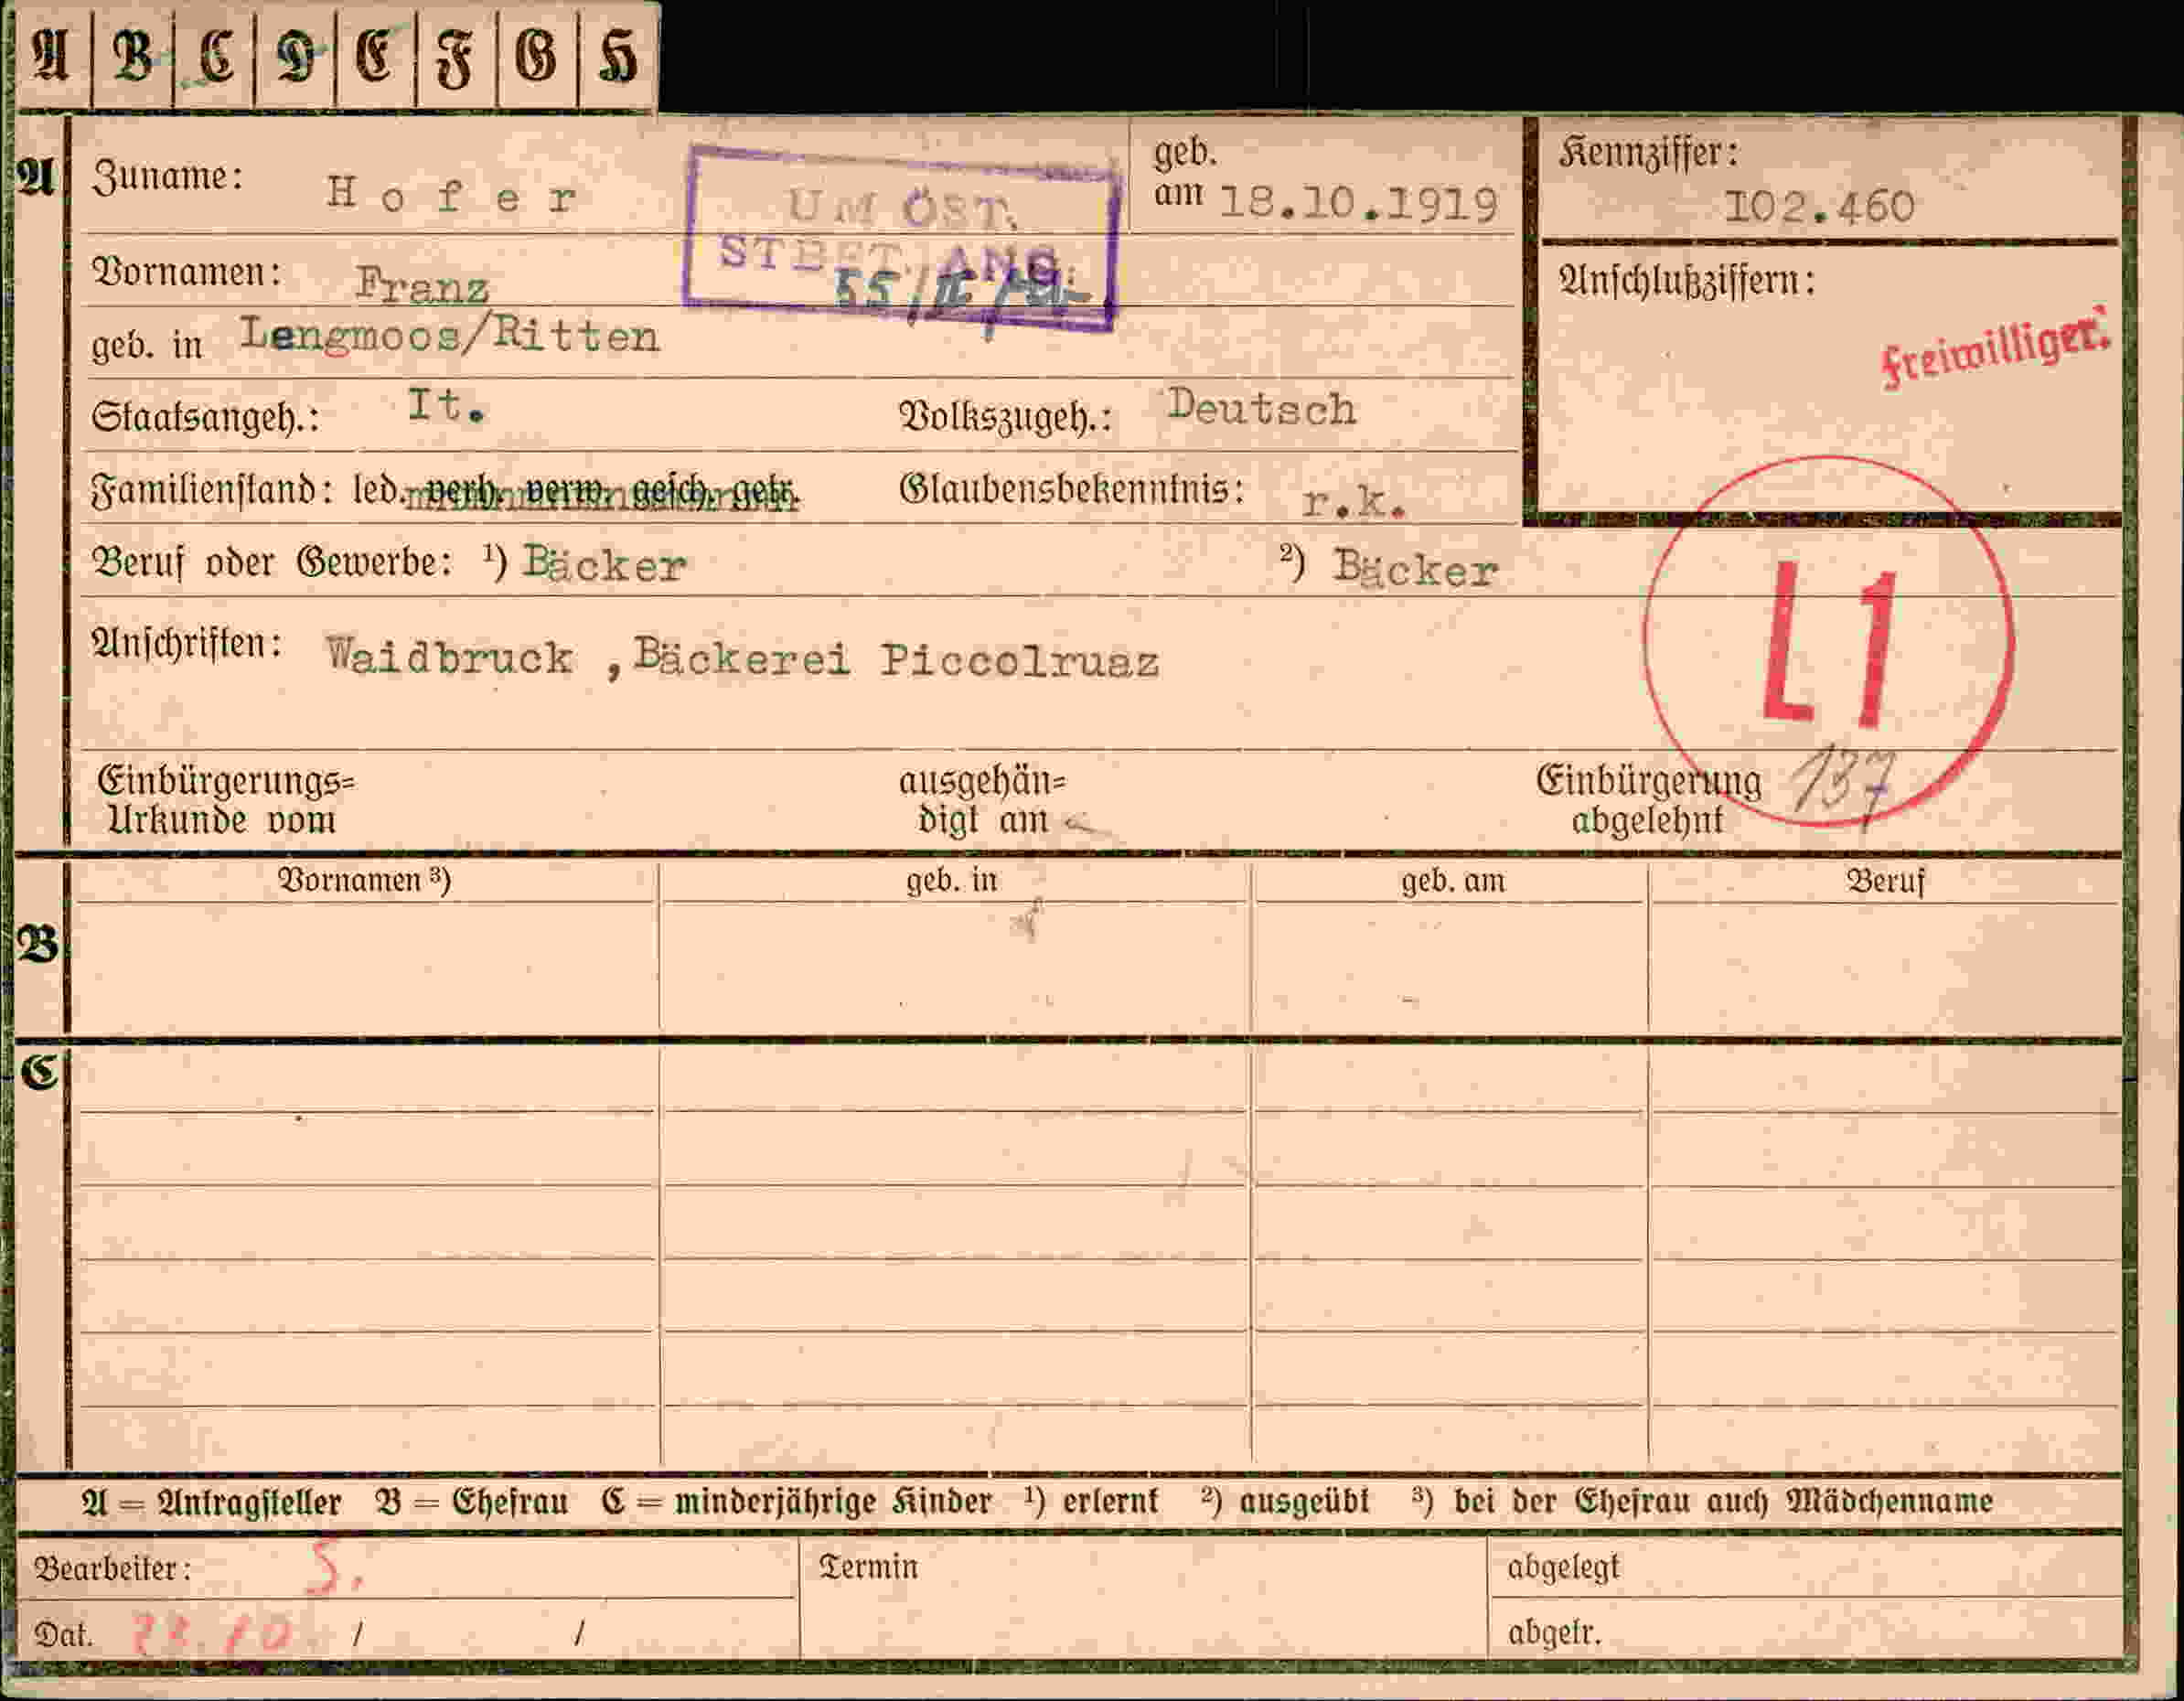 A B C D E F G H
A
Zuname: Hofer
geb.
am 18.10.1919
Kennziffer:
I02.460
UM ÖST.
STBET. ANG.
55/II/
Vornamen: Franz
geb. in Lengmoos/Ritten
Anschlußziffern:
freiwilliger.
Staatsangeh.: It. Volkszugeh.: Deutsch
Familienstand: led. verh. verw. gesch. getr. Glaubensbekenntnis: r.k.
Beruf oder Gewerbe: ¹) Bäcker ²) Bäcker
Anschriften: Waidbruck ,Bäckerei Piccolruaz
L 1
137
Einbürgerungs= ausgehän= Einbürgerung
Urkunde vom digt am abgelehnt
Vornamen ³) geb. in geb. am Beruf
B
C
A = Antragsteller B = Ehefrau C = minderjährige Kinder ¹) erlernt ²) ausgeübt ³) bei der Ehefrau auch Mädchenname
Bearbeiter: S. Termin abgelegt
Dat. 10 / / abgetr.